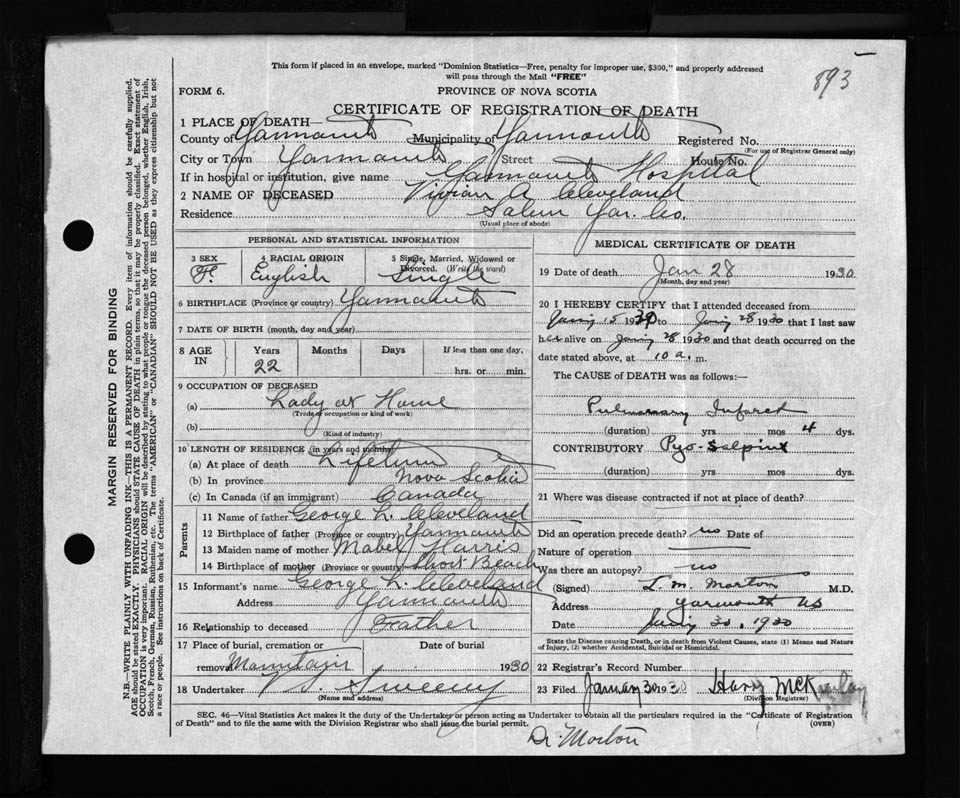 This form if placed in an envelope, marked "Dominion Statistics—Free, penalty for improper use, $300," and properly addressed
will pass through the Mail "FREE"
893
FORM 6.
PROVINCE OF NOVA SCOTIA
CERTIFICATE OF REGISTRATION OF DEATH
1 PLACE OF DEATH—
County of Yarmouth Municipality of Yarmouth Registered No.
(For use of Registrar General only)
City or Town Yarmouth Street House No.
If in hospital or institution, give name Yarmouth Hospital
2 NAME OF DECEASED Vivian A Cleveland
Residence Salem Yar. Co.
(Usual place of abode)
PERSONAL AND STATISTICAL INFORMATION
3 SEX 4 RACIAL ORIGIN 5 Single, Married, Widowed or Divorced. (Write the word)
F. English Single
6 BIRTHPLACE (Province or country) Yarmouth
7 DATE OF BIRTH (month, day and year)
8 AGE IN Years Months Days If less than one day,
22 hrs. or min.
9 OCCUPATION OF DECEASED
(a) Lady at Home
(Trade or occupation or kind of work)
(b)
(Kind of industry)
10 LENGTH OF RESIDENCE (in years and months)
(a) At place of death Lifetime
(b) In province Nova Scotia
(c) In Canada (if an immigrant) Canada
Parents
11 Name of father George L. Cleveland
12 Birthplace of father (Province or country) Yarmouth
13 Maiden name of mother Mabel Harris
14 Birthplace of mother (Province or country) Short Beach
15 Informant's name George L. Cleveland
Address Yarmouth
16 Relationship to deceased Father
17 Place of burial, cremation or Date of burial
removal Mountain 1930
18 Undertaker Sweeny
(Name and address)
MEDICAL CERTIFICATE OF DEATH
19 Date of death Jan 28 1930
(Month, day and year)
20 I HEREBY CERTIFY that I attended deceased from
15 1930 to 28 1930 that I last saw
her alive on 28 1930 and that death occurred on the
date stated above, at 10 a. m.
The CAUSE of DEATH was as follows:—
Pulmonary Infarct
(duration) yrs mos 4 dys.
CONTRIBUTORY Pyo-Salpinx
(duration) yrs mos dys.
21 Where was disease contracted if not at place of death?
Did an operation precede death? no Date of
Nature of operation
Was there an autopsy? no
(Signed) L. M. Morton M.D.
Address Yarmouth NS
Date 30, 1930
State the Disease causing Death, or in death from Violent Causes, state (1) Means and Nature
of Injury, (2) whether Accidental, Suicidal or Homicidal.
22 Registrar's Record Number
23 Filed January 30 1930 Harry
(Division Registrar)
SEC. 46—Vital Statistics Act makes it the duty of the Undertaker or person acting as Undertaker to obtain all the particulars required in the "Certificate of Registration
of Death" and to file the same with the Division Registrar who shall issue the burial permit.
(OVER)
Dr. Morton
MARGIN RESERVED FOR BINDING
N.B.—WRITE PLAINLY WITH UNFADING INK—THIS IS A PERMANENT RECORD. Every item of information should be carefully supplied.
AGE should be stated EXACTLY. PHYSICIANS should STATE CAUSE OF DEATH in plain terms, so that it may be properly classified. Exact statement of
OCCUPATION is very important. RACIAL ORIGIN will be described by stating to what people or tongue the deceased person belonged, whether English, Irish,
Scotch, French, German, Russian, Ruthenian, etc. The terms "AMERICAN" or "CANADIAN" SHOULD NOT BE USED as they express citizenship but not
a race or people. See instructions on back of Certificate.